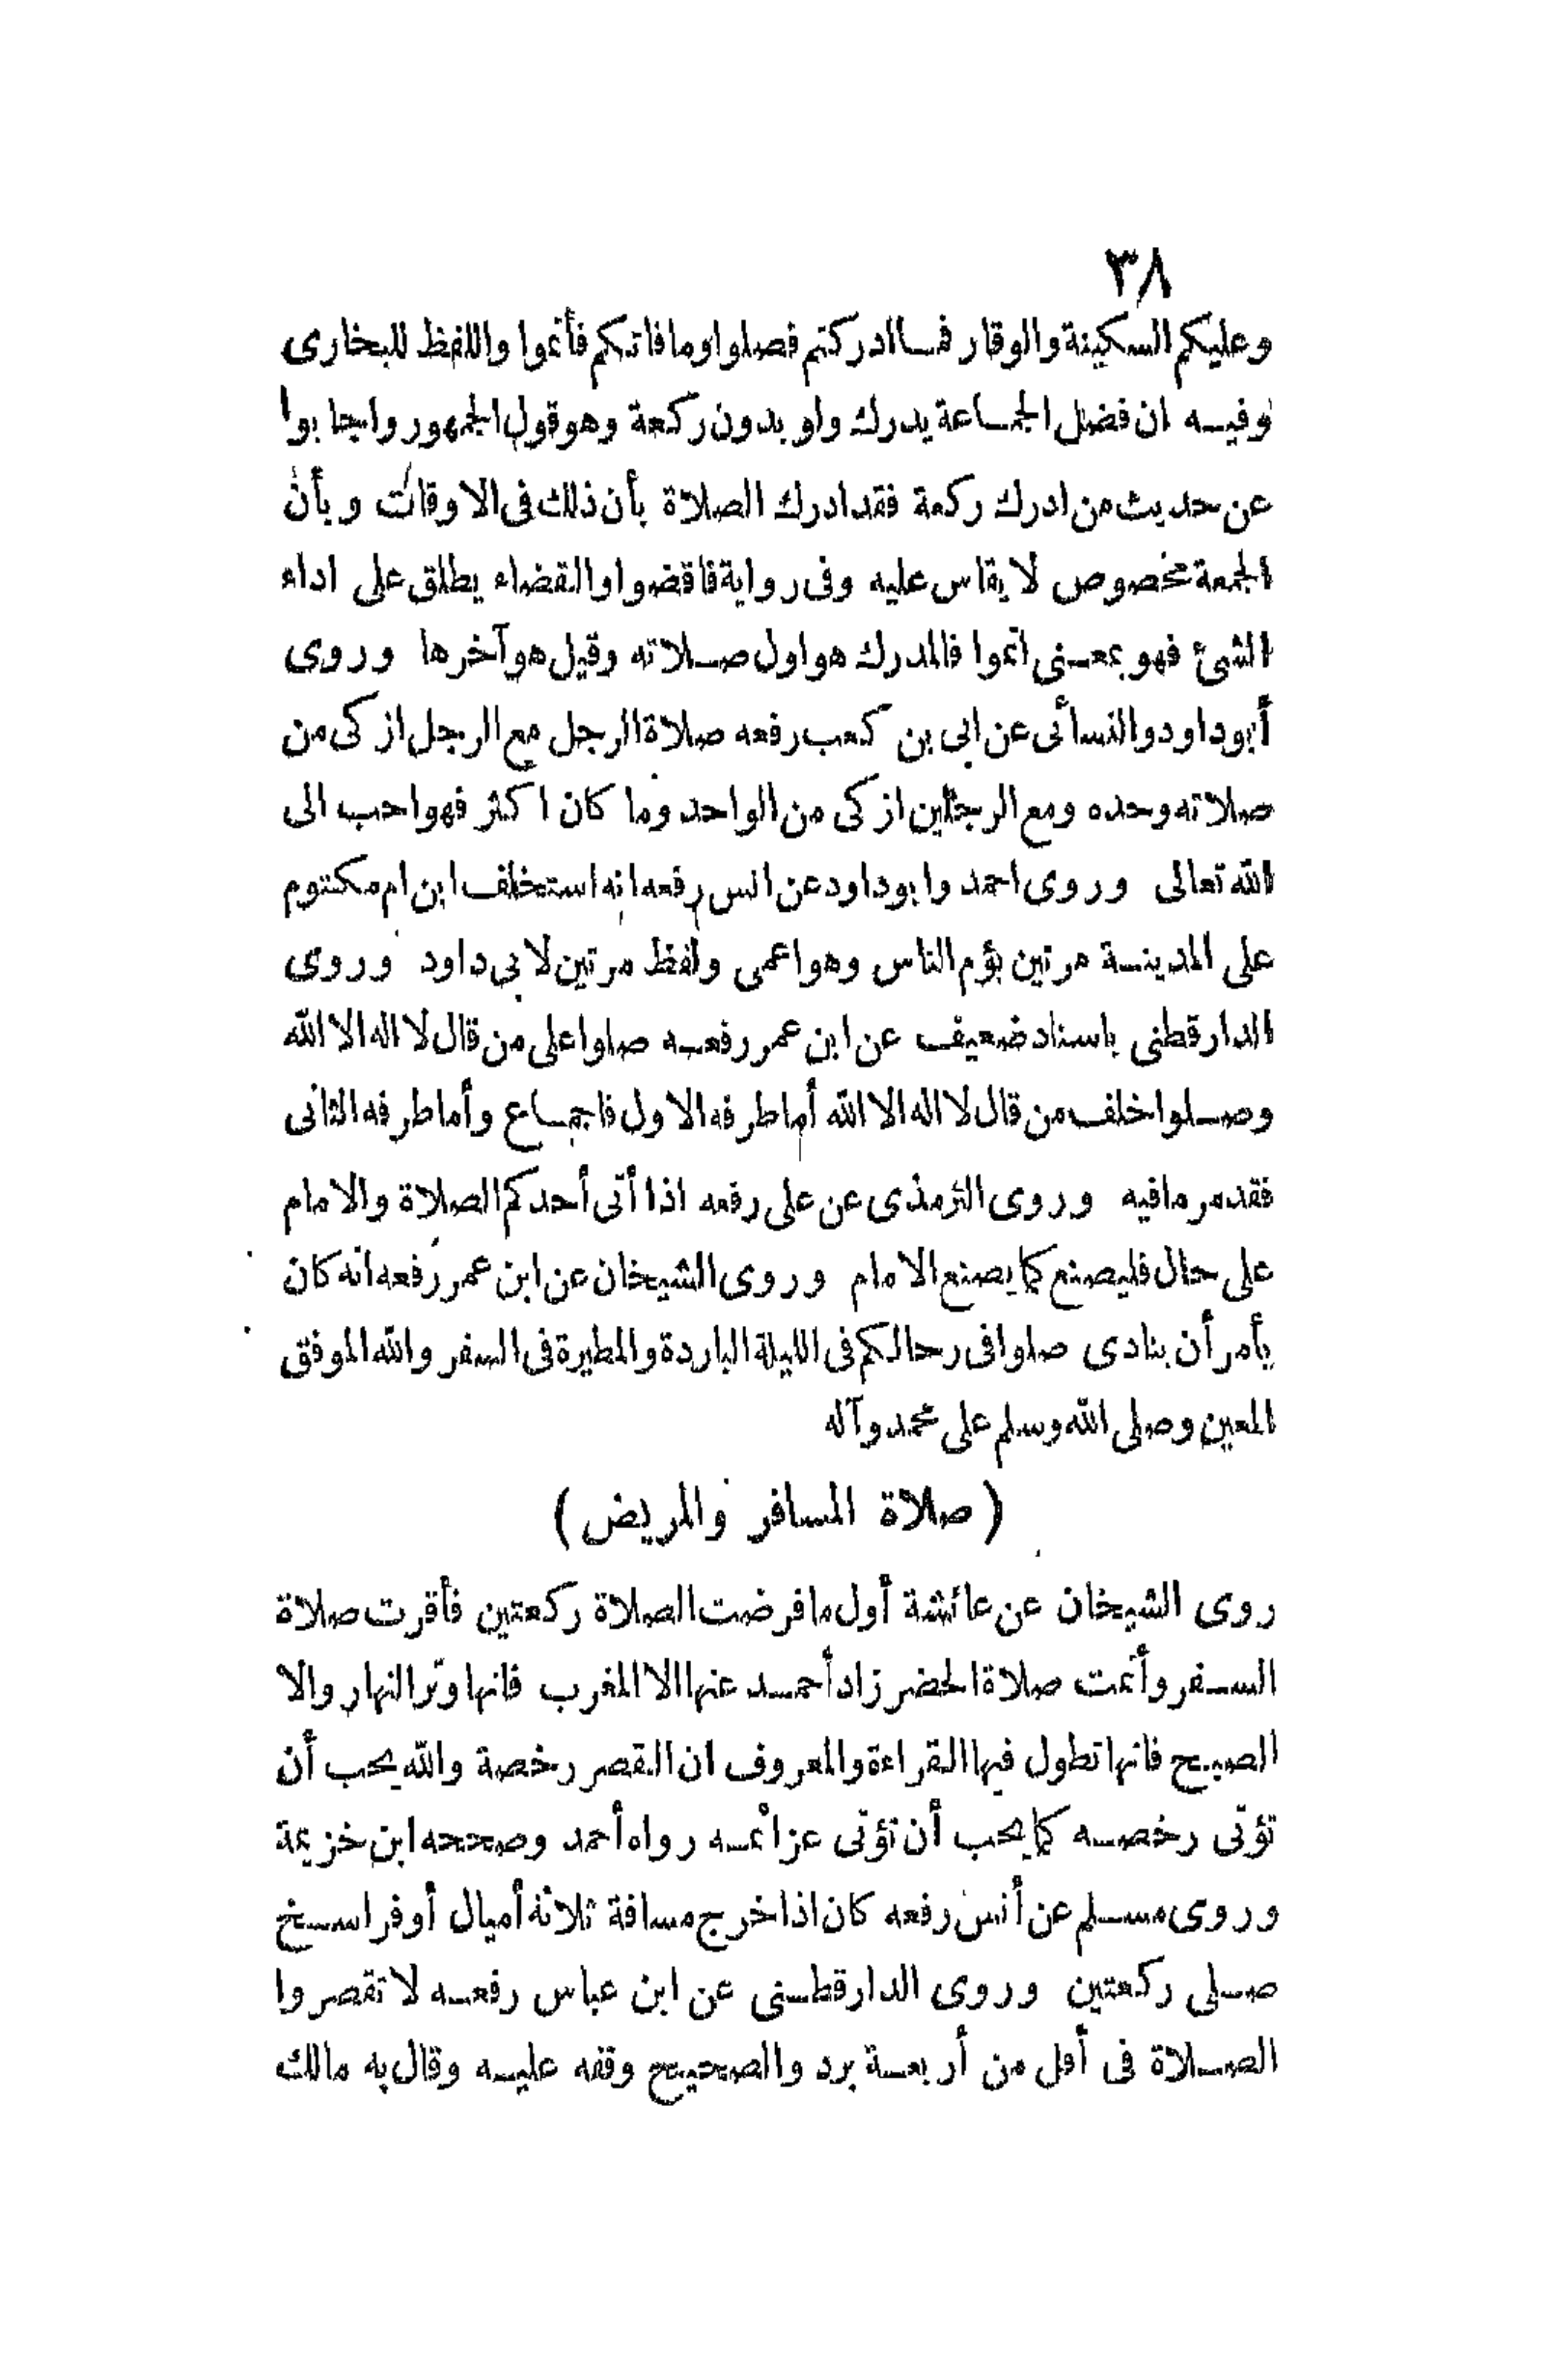 ٣٨
وعليكم السكينة والوقار فما ادركتم فصلوا وما فاتكم فأتموا واللفظ للبخارى
وفيه ان فضل الجماعة يدرك ولو بدون ركعة وهو قول الجمهور واجابوا
عن حديث من ادرك ركعة فقد ادرك الصلاة بأن ذلك فى الاوقات وبأن
الجمعة مخصوص لا يقاس عليه وفى رواية فاقضوا والقضاء يطلق على اداء
الشئ فهو بمعنى اتموا فالمدرك هو اول صلاته وقيل هو آخرها وروى
أبوداود والنسائى عن ابى بن كعب رفعه صلاة الرجل مع الرجل ازكى من
صلاته وحده ومع الرجلين ازكى من الواحد وما كان اكثر فهو احب الى
الله تعالى وروى احمد وابوداود عن انس رفعه انه استخلف ابن ام مكتوم
على المدينة مرتين يؤم الناس وهو اعمى ولفظ مرتين لابى داود وروى
الدارقطنى باسناد ضعيف عن ابن عمر رفعه صلوا على من قال لا اله الا الله
وصلوا خلف من قال لا اله الا الله أما طرفه الاول فاجماع وأما طرفه الثانى
فقد مر مافيه وروى الترمذى عن على رفعه اذا أتى أحدكم الصلاة والامام
على حال فليصنع كما يصنع الامام وروى الشيخان عن ابن عمر رفعه انه كان
يأمر أن ينادى صلوا فى رحالكم فى الليلة الباردة والمطيرة فى السفر والله الموفق
المعين وصلى الله وسلم على محمد وآله
(صلاة المسافر والمريض)
روى الشيخان عن عائشة أول ما فرضت الصلاة ركعتين فأقرت صلاة
السفر وأتمت صلاة الحضر زاد أحمد عنها الا المغرب فانها وتر النهار والا
الصبح فانها تطول فيها القراءة والمعروف ان القصر رخصة والله يحب أن
تؤتى رخصه كما يحب أن تؤتى عزائمه رواه أحمد وصححه ابن خزيمة
وروى مسلم عن أنس رفعه كان اذا خرج مسافة ثلاثة أميال أو فراسخ
صلى ركعتين وروى الدارقطنى عن ابن عباس رفعه لا تقصروا
الصلاة فى أقل من أربعة برد والصحيح وقفه عليه وقال به مالك